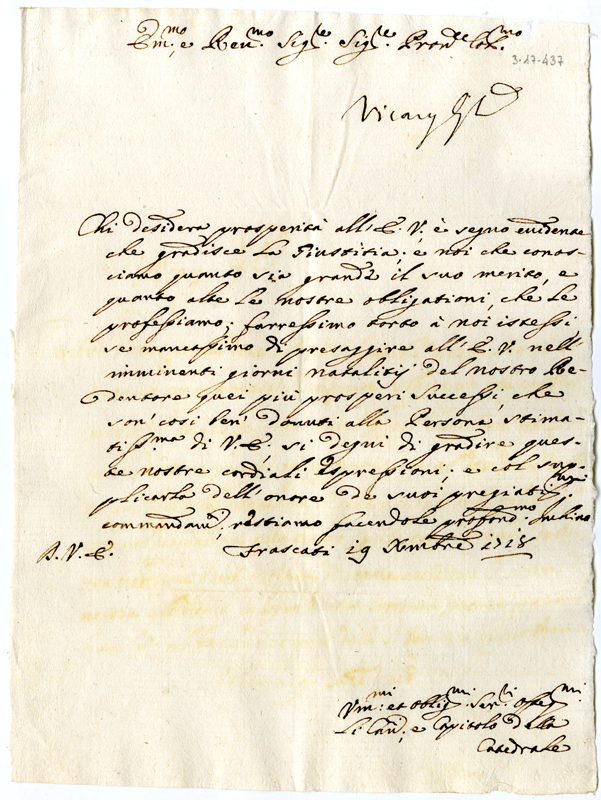 Em.mo e Reu.mo Sig.re Sig.re Pron.e Col.mo
3-17-437
Chi desidera prosperità all'E. V. è segno euidente
che gradisce La Giustitia; e noi che conos-
ciamo quanto sia grande il suo merito, e
quanto alte le nostre obligationi, che le
professiamo; farressimo torto à noi istessi,
se mancassimo di presaggire all'E. V. nell'
imminenti giorni natalitij del nostro Re-
dentore quei più prosperi successi, che
son' così ben' douuti alla Persona stima-
tiss.ma di V. E., si degni di gradire ques-
te nostre cordiali espressioni; e col sup-
plicarla dell'onore de suoi pregiatis.mi
commandam.ti, restiamo facendole profond.mo inchino
D. V. E. Frascati 19 Xmbre 1718
Vm.mi et oblig.mi Ser.ri osseq.mi
Li Can.ci, e Capitolo della
Catedrale